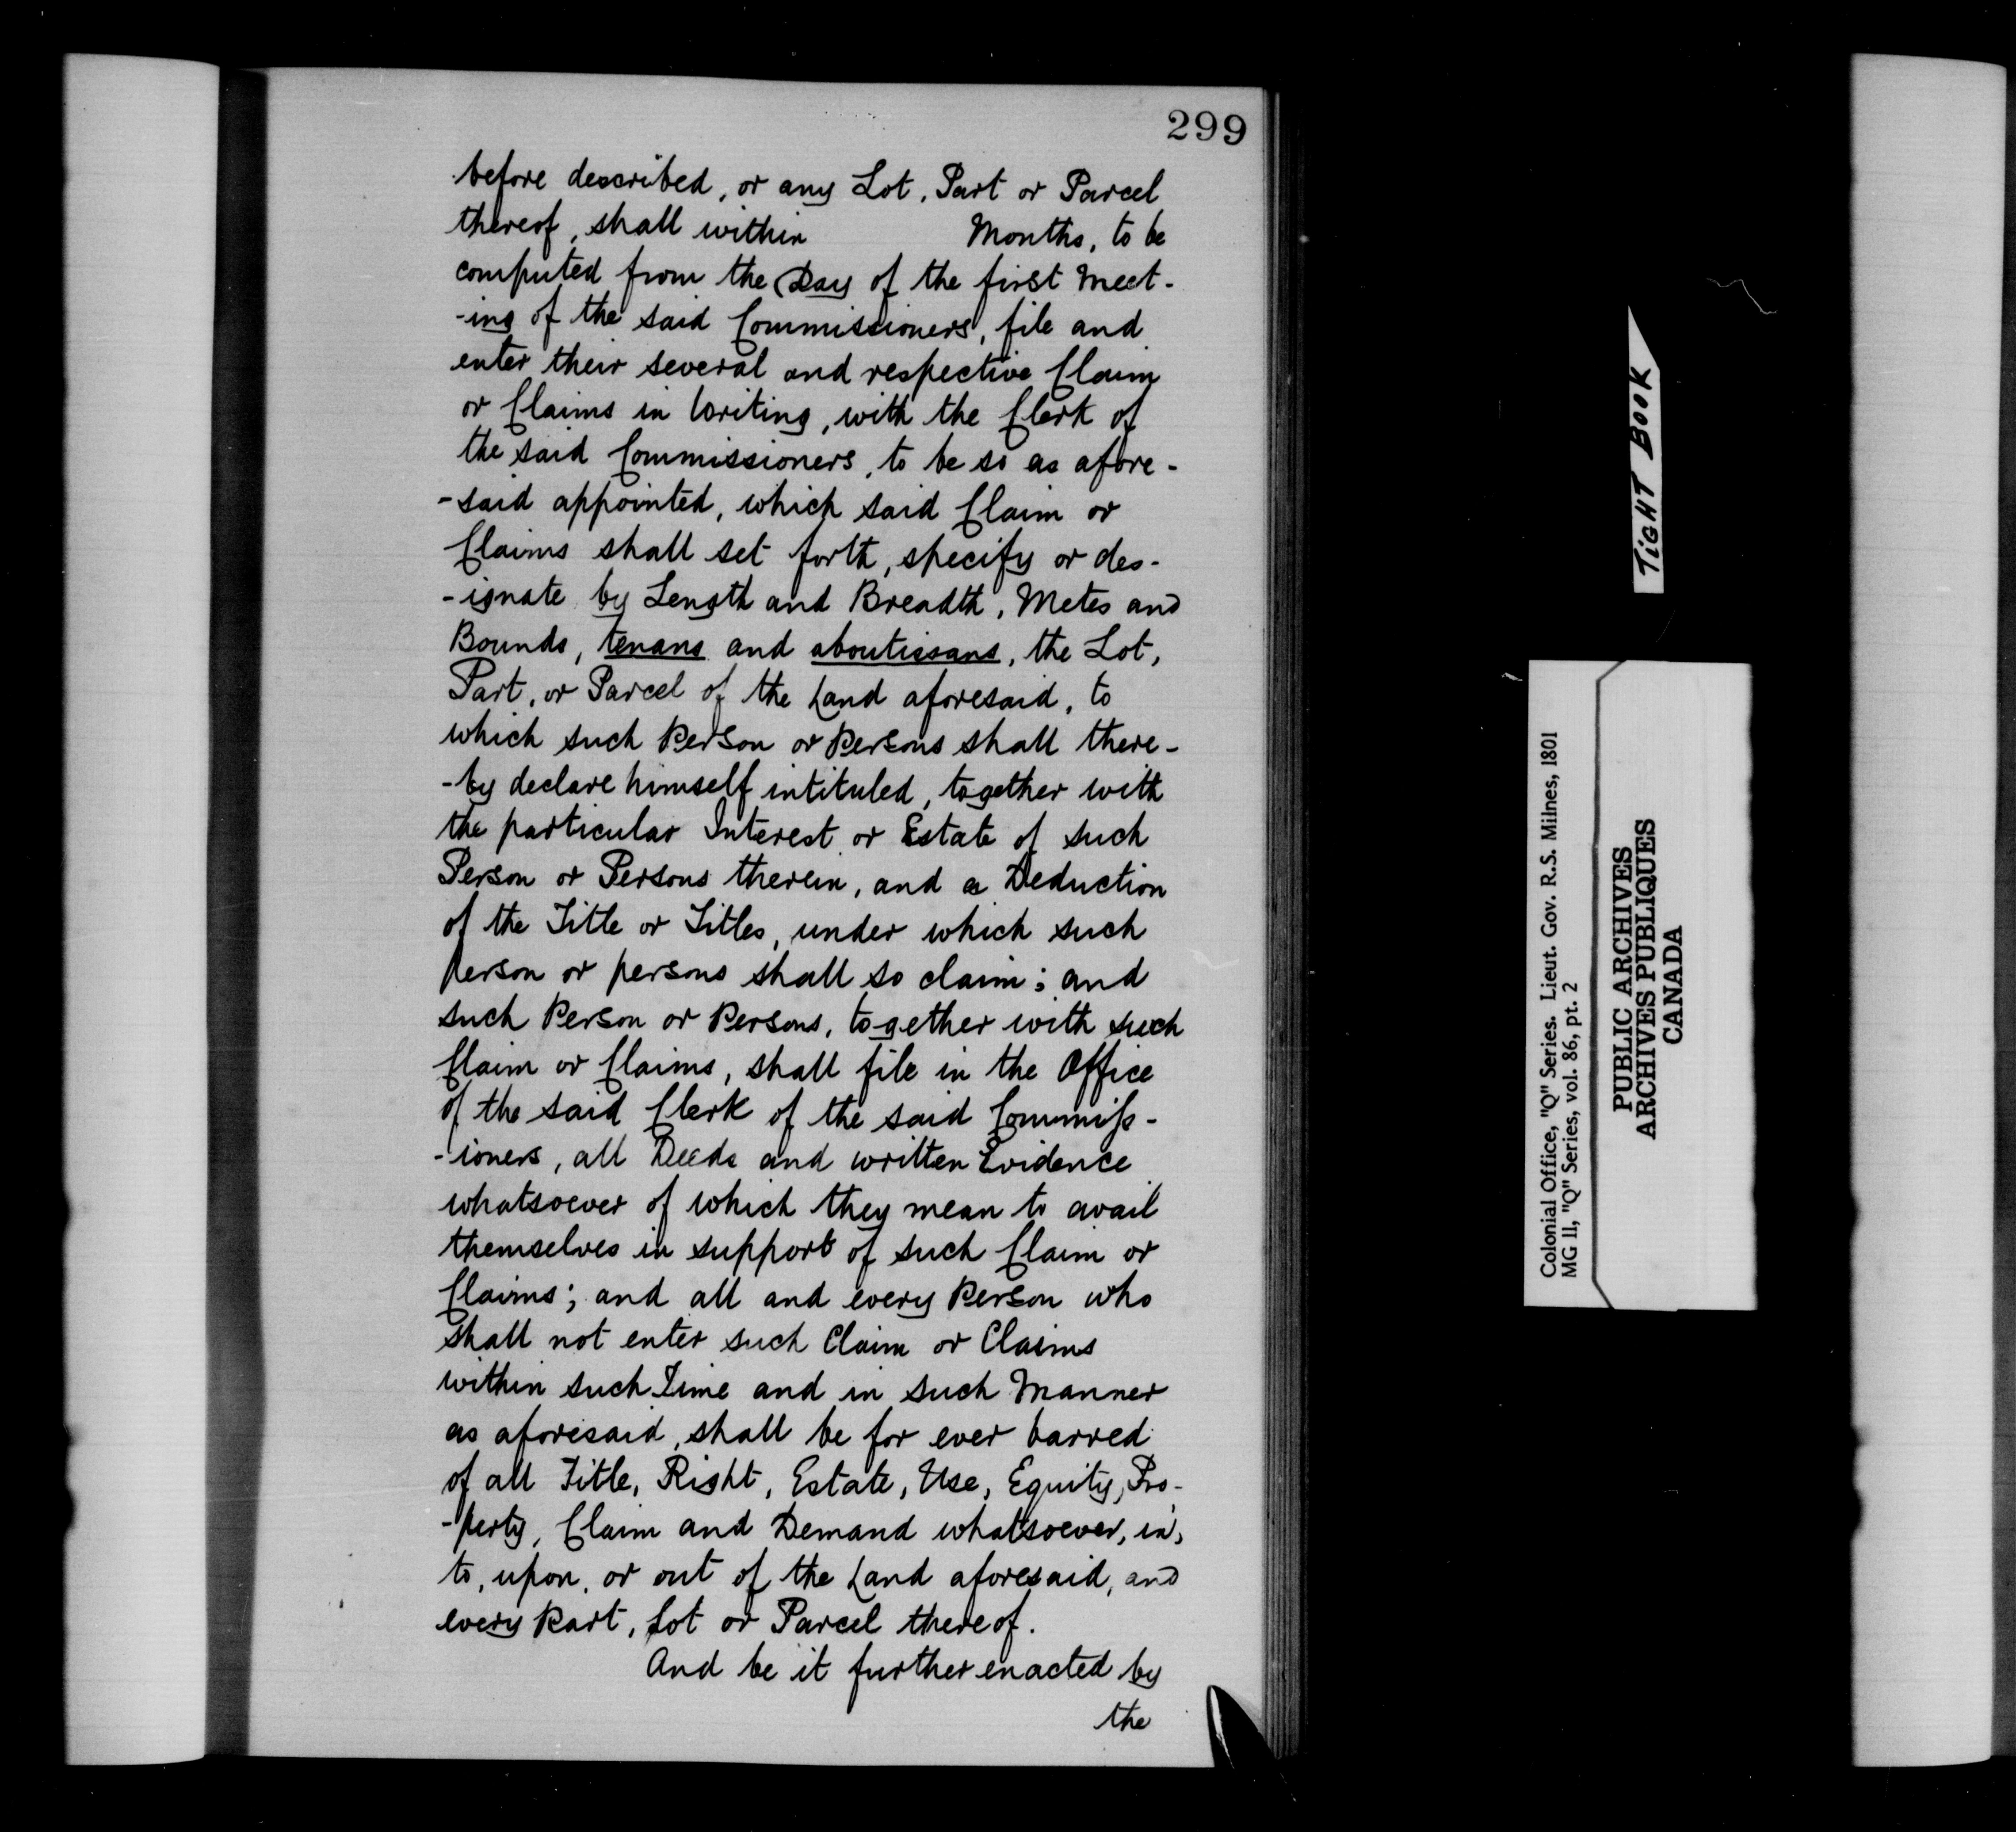 299
before described, or any Lot, Part or Parcel
thereof, shall within Months, to be
computed from the Day of the first Meet-
-ing of the said Commissioners, file and
enter their several and respective Claim
or Claims in Writing, with the Clerk of
the said Commissioners, to be so as afore-
-said appointed, which said Claim or
Claims shall set forth, specify or des-
-ignate by Length and Breadth, Metes and
Bounds, tenans and aboutissans, the Lot,
Part, or Parcel of the Land aforesaid, to
which such Person or Persons shall there-
-by declare himself intituled, together with
the particular Interest or Estate of such
Person or Persons therein, and a Deduction
of the Title or Titles, under which such
person or persons shall so claim; and
such Person or Persons, together with such
Claim or Claims, shall file in the Office
of the said Clerk of the said Commiss-
-ioners, all Deeds and written Evidence
whatsoever of which they mean to avail
themselves in support of such Claim or
Claims; and all and every Person who
shall not enter such Claim or Claims
within such Time and in such Manner
as aforesaid, shall be for ever barred
of all Title, Right, Estate, Use, Equity, Pro-
-perty, Claim and Demand whatsoever, in,
to, upon, or out of the Land aforesaid, and
every Part, Lot or Parcel thereof.
And be it further enacted by
the
TiGHT BOOK
Colonial Office, "Q" Series. Lieut. Gov. R.S. Milnes, 1801
MG 11, "Q" Series, vol. 86, pt. 2
PUBLIC ARCHIVES
ARCHIVES PUBLIQUES
CANADA